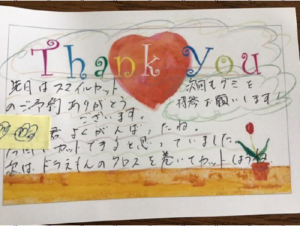 Thank you
先日はスマイルカット
のご予約ありがとう
ございます。
次回もグミを
持参お願いします!
君よくがんばったね。
カットできると思っていました。
次はドラえもんのクロスを巻いてカット